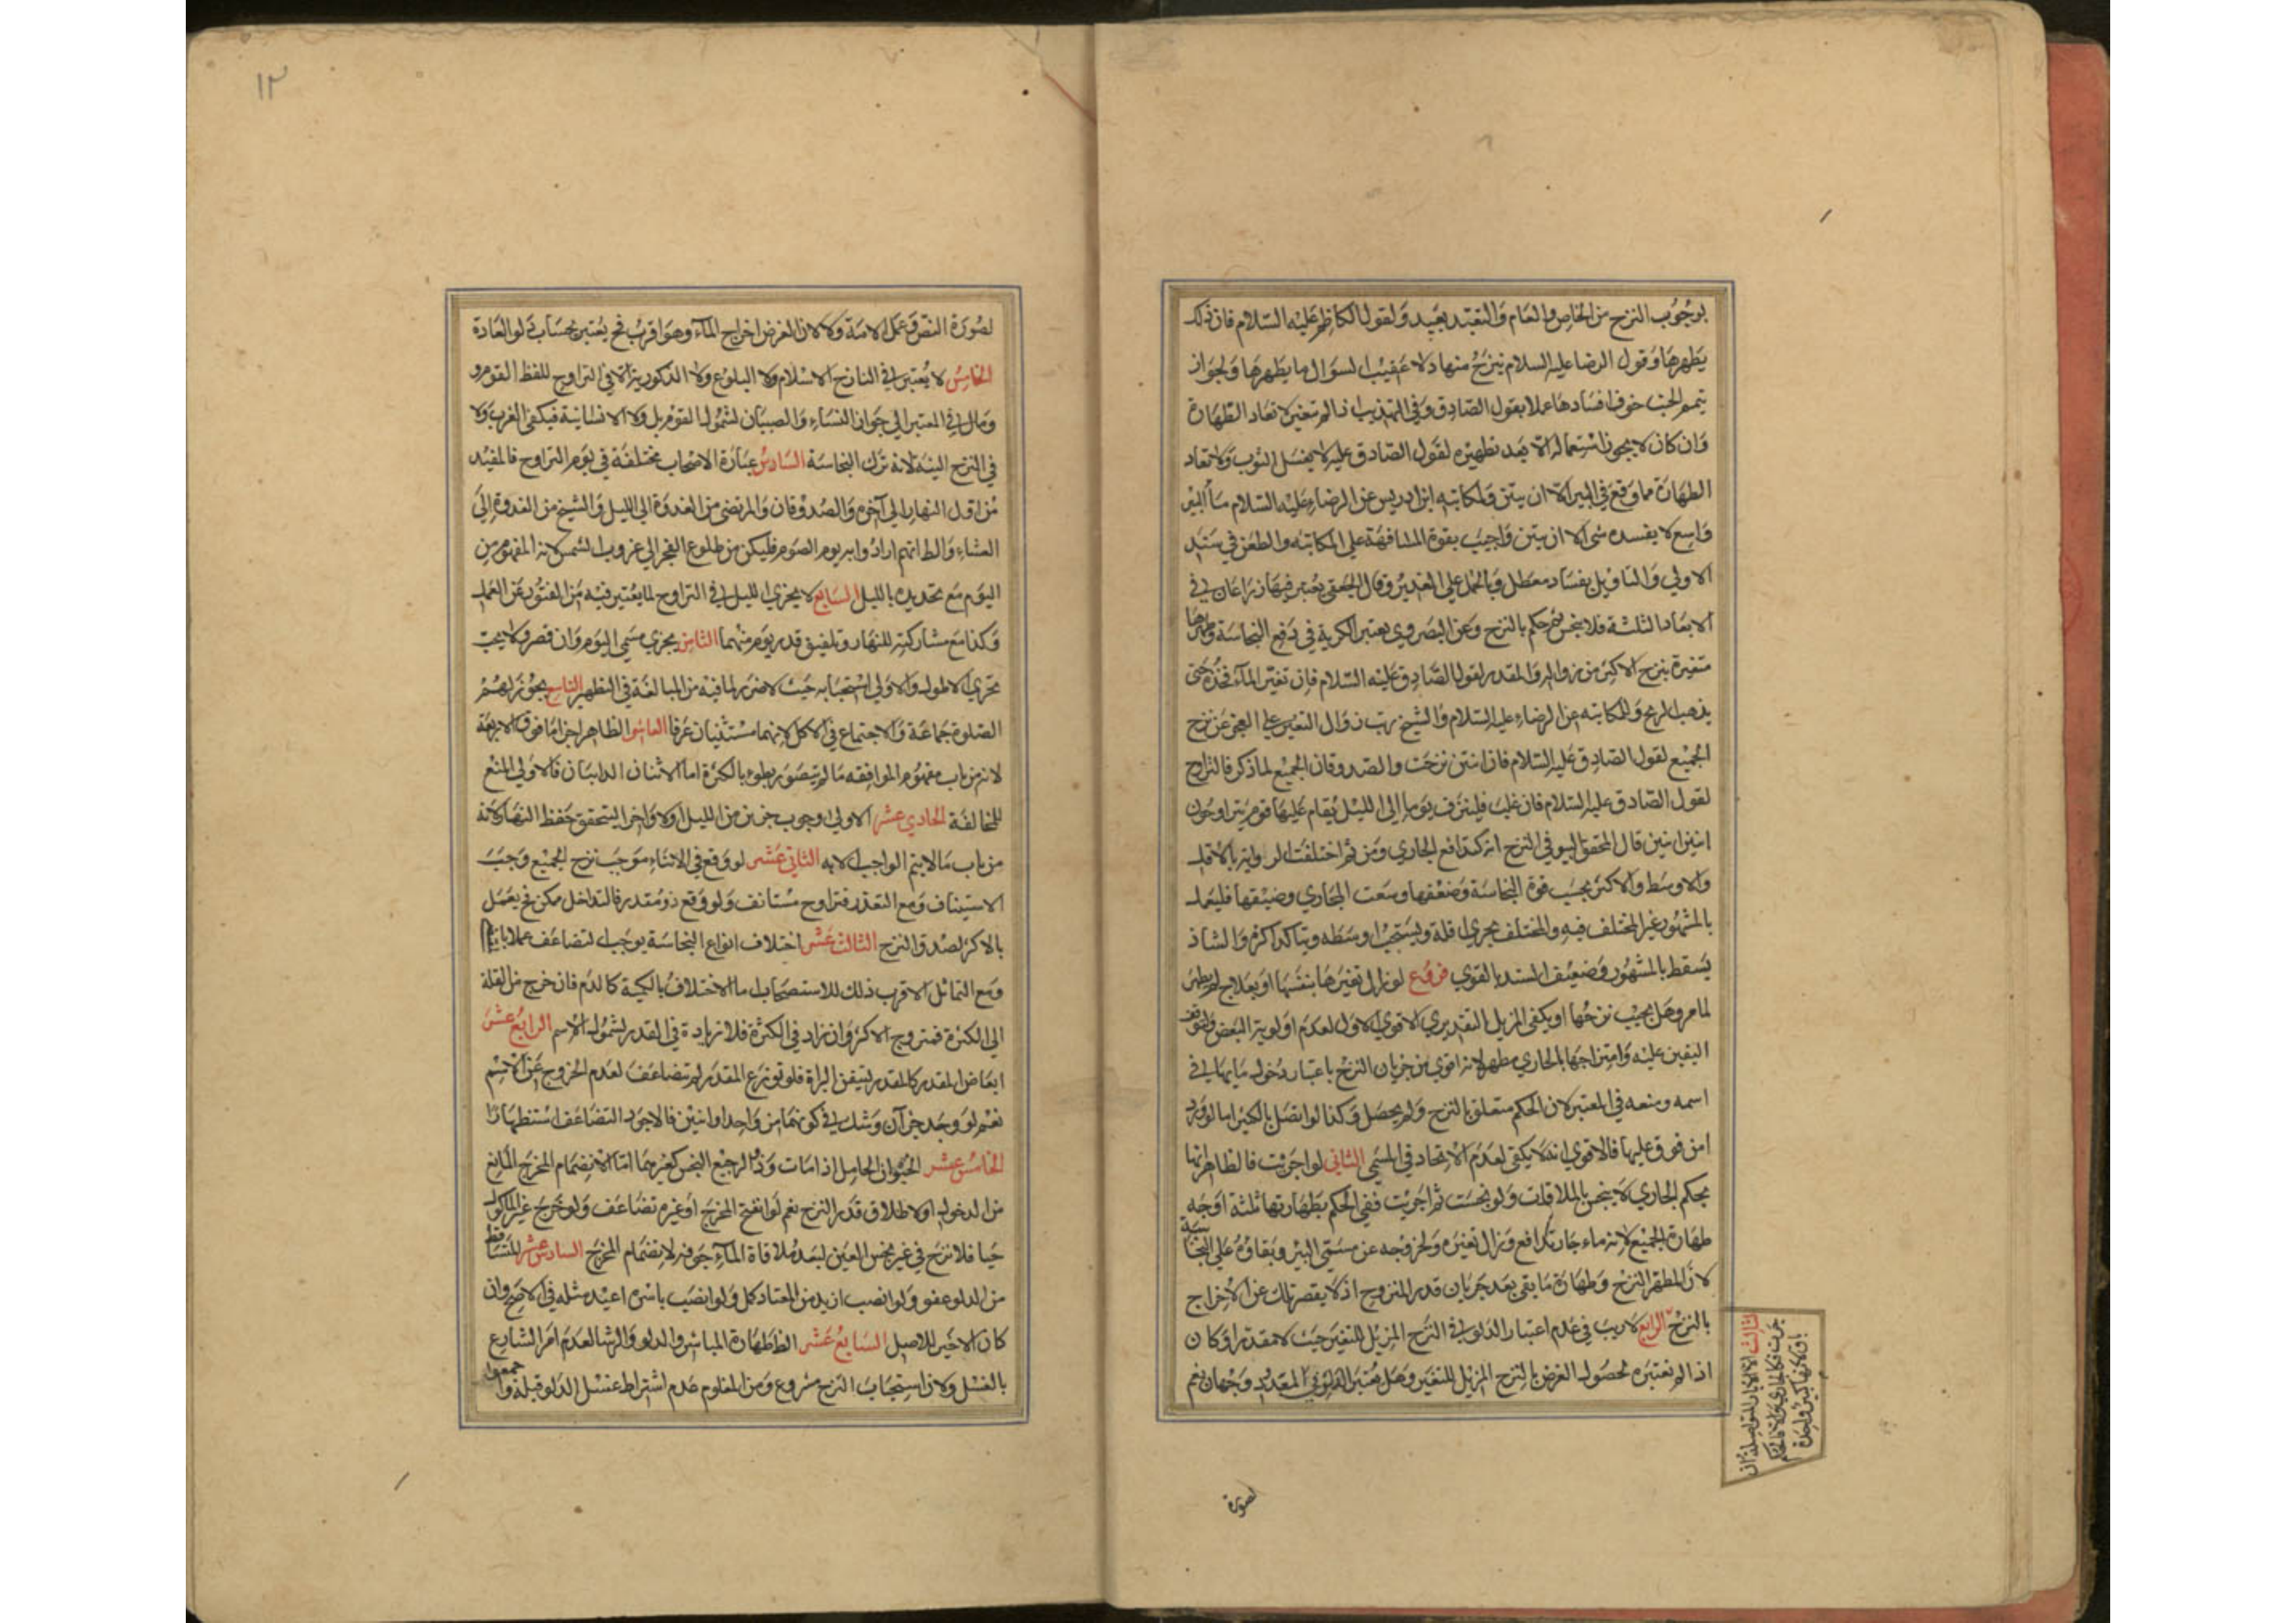 لوجوب النزح من الخاص والعام والتعبد بعيد ولقول الكاظم عليه السلام فان ذلك
يطهرها وقول الرضا عليه السلام ينزح منها دلاء عقيب السوال ما يطهرها ولجواز
تيمم الجنب خوف افسادها عملا بقول الصادق وفي التهذيب اذا لم تتغير لا تعاد الطهارة
وان كان لا يجوز استعماله الا بعد تطهيره لقول الصادق عليه لا يغسل الثوب ولا تعاد
الطهارة مما وقع في البير الا ان ينتن ولمكاتبه ابن ادريس عن الرضاء عليه السلام ماء البير
واسع لا يفسده شي الا ان ينتن واجيب بقوة المشافهة علي المكاتبه والطعن في سند
الاولي والتاويل بفساد معطل وبالحمل علي الغدير وقال الجعفي يعتبر فيها ذراعان في
الابعاد الثلثة فلا ينجس ثم حكم بالنزح وعن البصروي يعتبر الكرية في دفع النجاسة وطهرها
متغيرة بنزح الاكثر من زواله والمقدر لقول الصادق عليه السلام فان تغير الماء فخذه حتى
يذهب الريح والمكاتبه عن الرضاء عليه السلام والشيخ رتب زوال التغير علي العجز عن نزح
الجميع لقول الصادق عليه السلام فان انتن نزحت والصدوقان الجميع لما ذكر فالتراوح
لقول الصادق عليه السلام فان غلب فلينزف يوما الي الليل يقام عليها قوم يتراوحون
اثنين اثنين قال المحقق اليوفي النزح انه كتدافع الجاري ومن ثم اختلفت الرواية بالاقل
والاوسط والاكثر بحسب قوة النجاسة وضعفها وسعت المجاري وضيقها فليعمل
بالمشهور غير المختلف فيه والمختلف يجري اقله ويستحب اوسطه ويتاكد اكثره والشاذ
يسقط بالمشهور وضعيف السند بالقوي فروع لو زال تغيرها بنفسها او بعلاج لم يطهر
لما مر وهل يجب نزحها او يكفى المزيل التقديري الاقوي الاول لعدم اولوية البعض ولتوقف
اليقين عليه وامتزاجها بالجاري مطهر لانه اقوي من جريان النزح باعتبار دخول مايها في
اسمه ومنعه في المعتبر لان الحكم متعلق بالنزح ولم يحصل وكذا لو اتصل بالكثير اما لو ورد
امن فوق عليها فالاقوي انه لا يكفي لعدم الاتحاد في المسمي الثاني لو اجريت فالظاهر انها
بحكم الجاري لا ينجس بالملاقات ولو نجست ثم اجريت ففي الحكم بطهارتها ثلثه اوجه
طهارة الجميع لانه ماء جار تدافع وزال تغيره ولخروجه عن مسمي البير وبقاؤه علي النجاسة
لان المطهر النزح وطهارة ما بقي بعد جريان قدر المنزوح اذ لا يقصر ذلك عن الاخراج
بالنزح الرابع لا ريب في عدم اعتبار الدلو في النزح المزيل للتغير حيث لا مقدر او كان
اذا لم نعتبره لحصول الغرض بالنزح المزيل للتغير وهل يعتبر الدلو في المقدر وجهان نعم
الثالث الابار المتواصلة ان
جرت فكالجاري والا فالحكم
باق لانها كبير واحدة
لصورة
١٢
لصورة النص وعمل الامة ولا لان الغرض اخراج الماء وهو اقرب فح يعتبر بحسابه دلو العادة
الخامس لا يعتبر في النازح الاسلام ولا البلوغ ولا الذكورية الا في التراوح للفظ القوم و
ومال في المعتبر الي جواز النساء والصبيان لشمول القوم بل ولا الانسانية فيكفي الغرب ولا
في النزح النية لانه ترك النجاسة السادس عبارة الاصحاب مختلفة في يوم التراوح فالمفيد
من اول النهار الي آخره والصدوقان والمرتضى من الغدوة الي الليل والشيخ من الغدوة إلى
العشاء والظ انهم ارادوا به يوم الصوم فليكن من طلوع الفجر الي غروب الشمس لانه المفهوم من
اليوم مع تحديده بالليل السابع لا يجزي الليل في التراوح لما يعتبر فيه من الفتور عن العمل
وكذا مع مشاركته للنهار وتلفيق قدر يوم منهما الثامن يجزي مسمي اليوم وان قصر ولا يجب
تحري الاطول والاولي استحبابه حيث لا ضرر لما فيه من المبالغة في التطهير التاسع يجوز لهم
الصلوة جماعة والاجتماع في الاكل لانهما مستثنيان عرفا العاشر الظاهر اجزا ما فوق الاربعة
لانه من باب مفهوم الموافقه ما لم يتصور بطوء بالكثرة اما الاثنان الدائبان فالاولي المنع
للمخالفة الحادي عشر الاولي وجوب جزء من الليل اولا واخرا ليتحقق حفظ النهار لانه
من باب ما لا يتم الواجب الا به الثاني عشر لو وقع في الاثناء موجب نزح الجميع وجب
الاستيناف ومع التعذر فتراوح مستانف ولو وقع ذو مقدر فالتداخل ممكن فح يعمل
بالاكثر لصدق النزح الثالث عشر اختلاف انواع النجاسة يوجب التضاعف عملا
ومع التماثل الاقرب ذلك للاستصحاب اما الاختلاف بالكمية كالدم فان خرج من القلة
الي الكثرة فمنزوح الاكثر وان زاد في الكثرة فلا زيادة في القدر لشمول الاسم الرابع عشر
ابعاض المقدر كالمقدر ليتيقن البراة فلو توزع المقدر لم تضاعف لعدم الخروج عن الاسم
نعم لو وجد جزآن وشك في كونهما من واحد او اثنين فالاجود التضاعف استظهارا
الخامس عشر الحيوان الحامل اذا مات وذو الرجيع النجس كغيرهما اما لانضمام المخرج المانع
من الدخول او لاطلاق قدر النزح نعم لو انفتح المخرج او غيره تضاعف ولو خرج غير الماكول
حيا فلا نزح في غير نجس العين لبعد ملاقاة الماء جوفه لانضمام المخرج السادس عشر المتساقط
من الدلو عفو ولو انصب ازيد من المعتاد كمل ولو انصب باسره اعيد مثله في الاصح وان
كان الاخير للاصل السابع عشر الظ طهارة المباشر والدلو والرشا لعدم امر الشارع
بالغسل ولان استحباب النزح مشروع ومن المعلوم عدم اشتراط غسل الدلو قبله